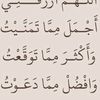 اللهم ارزقني
أَجْمَلَ مِمَّا تَمَنَّيْتُ
وَأَكْثَرَ مِمَّا تَوَقَّعْتُ
وَأَفْضَلَ مِمَّا دَعَوْتُ